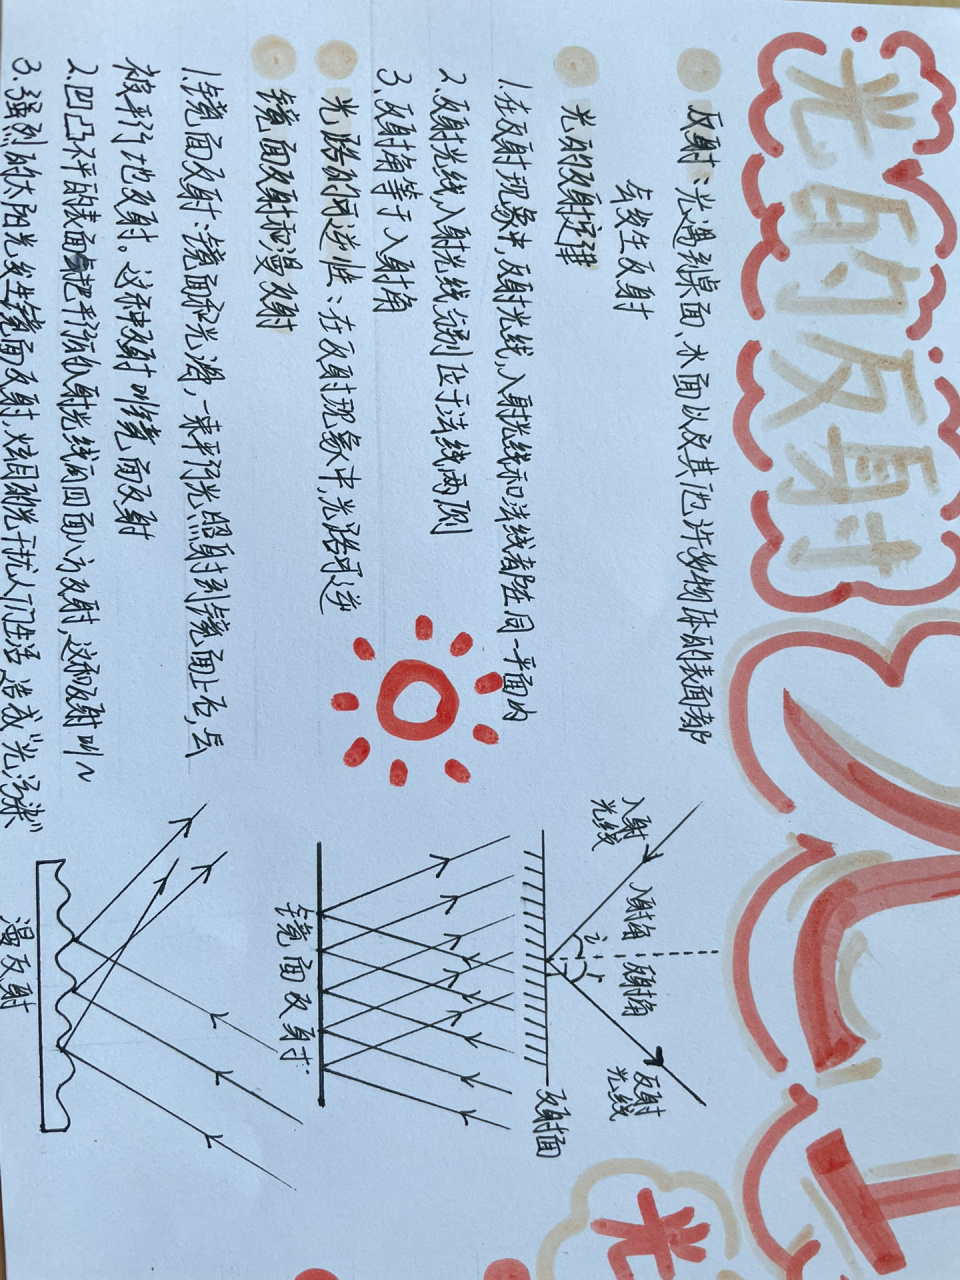 光的反射
反射:光遇到桌面、水面以及其他许多物体的表面都
会发生反射
光的反射定律
1.在反射现象中,反射光线,入射光线和法线都在同一平面内
2.反射光线,入射光线分别位于法线两侧
3.反射角等于入射角
光路的可逆性:在反射现象中,光路可逆
镜面反射和漫反射
1.镜面反射:镜面和光滑,一束平行光照射到镜面上后,会
被平行地反射。这种反射叫镜面反射
2.凹凸不平的表面会把平行的入射光线向四面八方反射,这种反射叫~
3.强烈的太阳光发生镜面反射,炫目的光干扰人们生活 造成"光污染"
入射
光线
入射角
i
r
反射角
反射
光线
反射面
镜面反射
漫反射
光